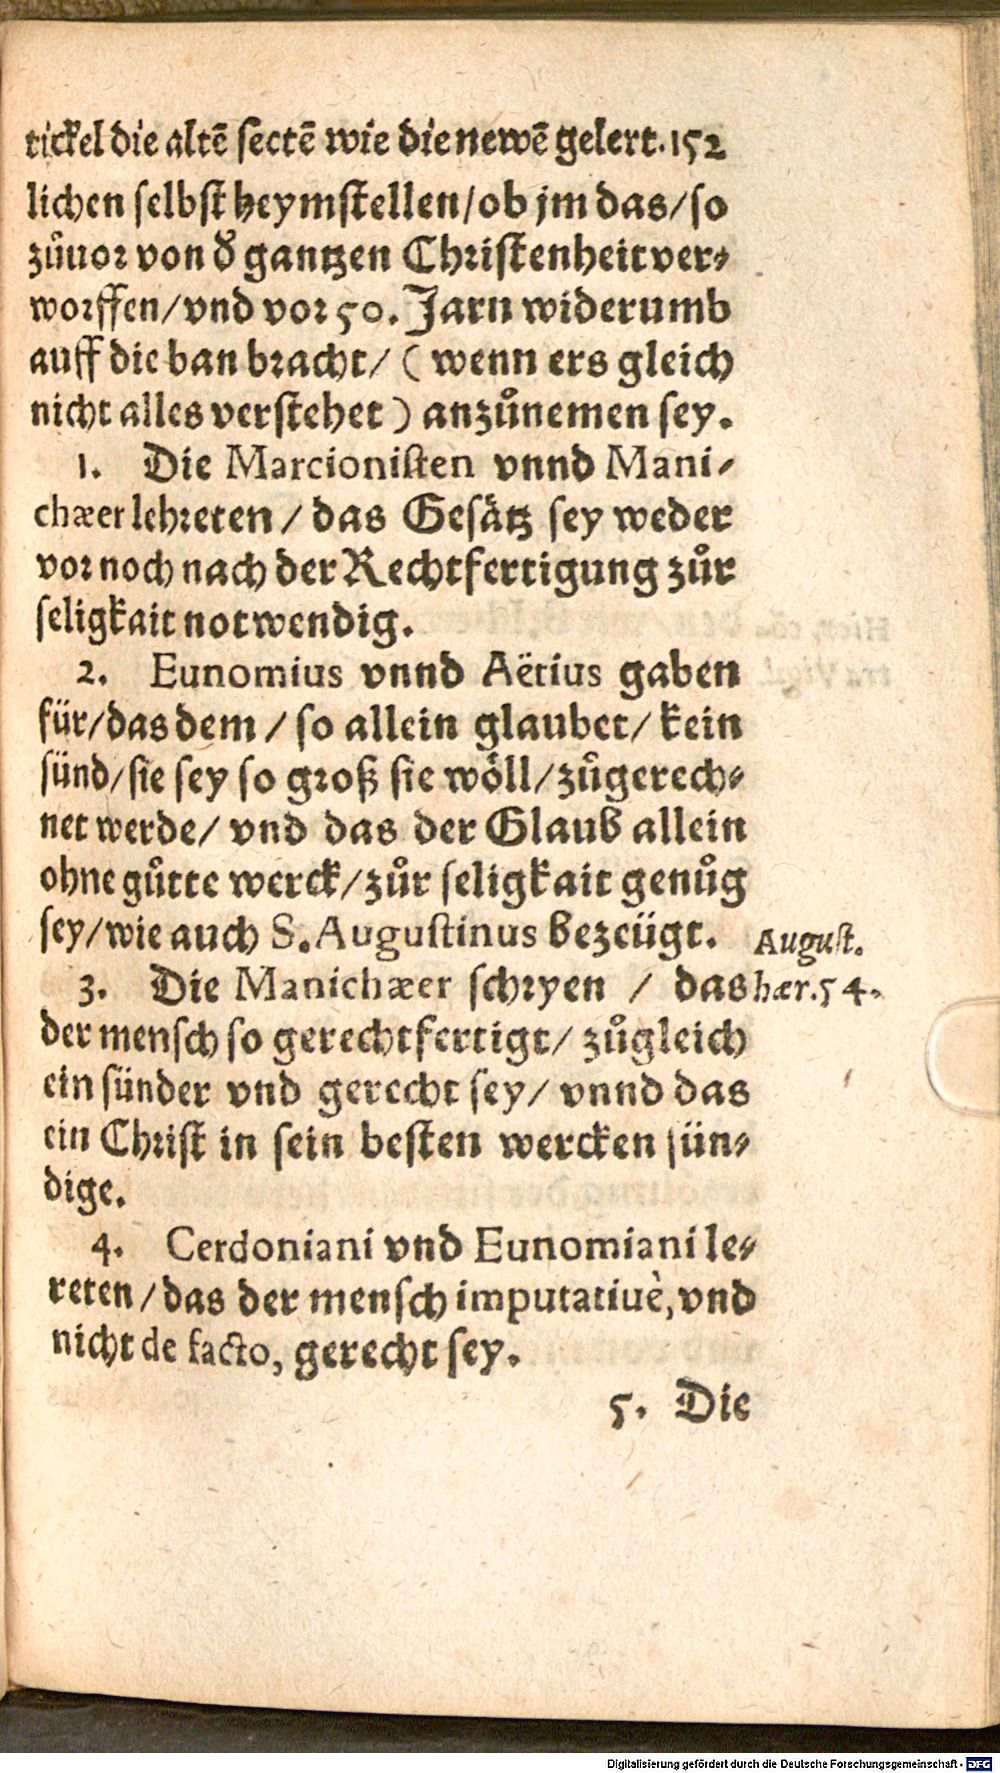 tickel die altē sectē wie die newē gelert. 152
lichen selbst heymstellen / ob jm das / so
zůuor von d' gantzen Christenheit ver⸗
worffen / vnd vor 50. Jarn widerumb
auff die ban bracht / ( wenn ers gleich
nicht alles verstehet ) anzůnemen sey.
1. Die Marcionisten vnnd Mani⸗
chæer lehreten / das Gesätz sey weder
vor noch nach der Rechtfertigung zůr
seligkait notwendig.
2. Eunomius vnnd Aëtius gaben
für / das dem / so allein glaubet / kein
sünd / sie sey so groß sie wöll / zůgerech⸗
net werde / vnd das der Glaub allein
ohne gůtte werck / zůr seligkait genůg
sey / wie auch S. Augustinus bezeügt.
August.
hær. 54.
3. Die Manichæer schryen / das
der mensch so gerechtfertigt / zůgleich
ein sünder vnd gerecht sey / vnnd das
ein Christ in sein besten wercken sün⸗
dige.
4. Cerdoniani vnd Eunomiani le⸗
reten / das der mensch imputatiuè, vnd
nicht de facto, gerecht sey.
5. Die
Digitalisierung gefördert durch die Deutsche Forschungsgemeinschaft - DFG